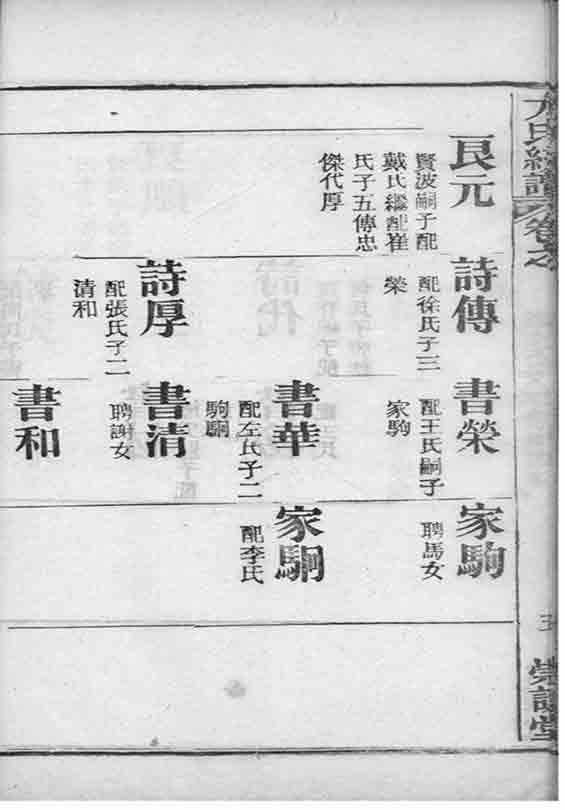 卷之
艮元
賢波嗣子配
戴氏繼配崔
氏子五傳忠
傑代厚
詩傳
配徐氏子三
榮
詩厚
配張氏子二
清和
書榮
配王氏嗣子
家駒
書華
配左氏子二
駒駉
書清
聘謝女
書和
家駒
聘馬女
家駉
配李氏